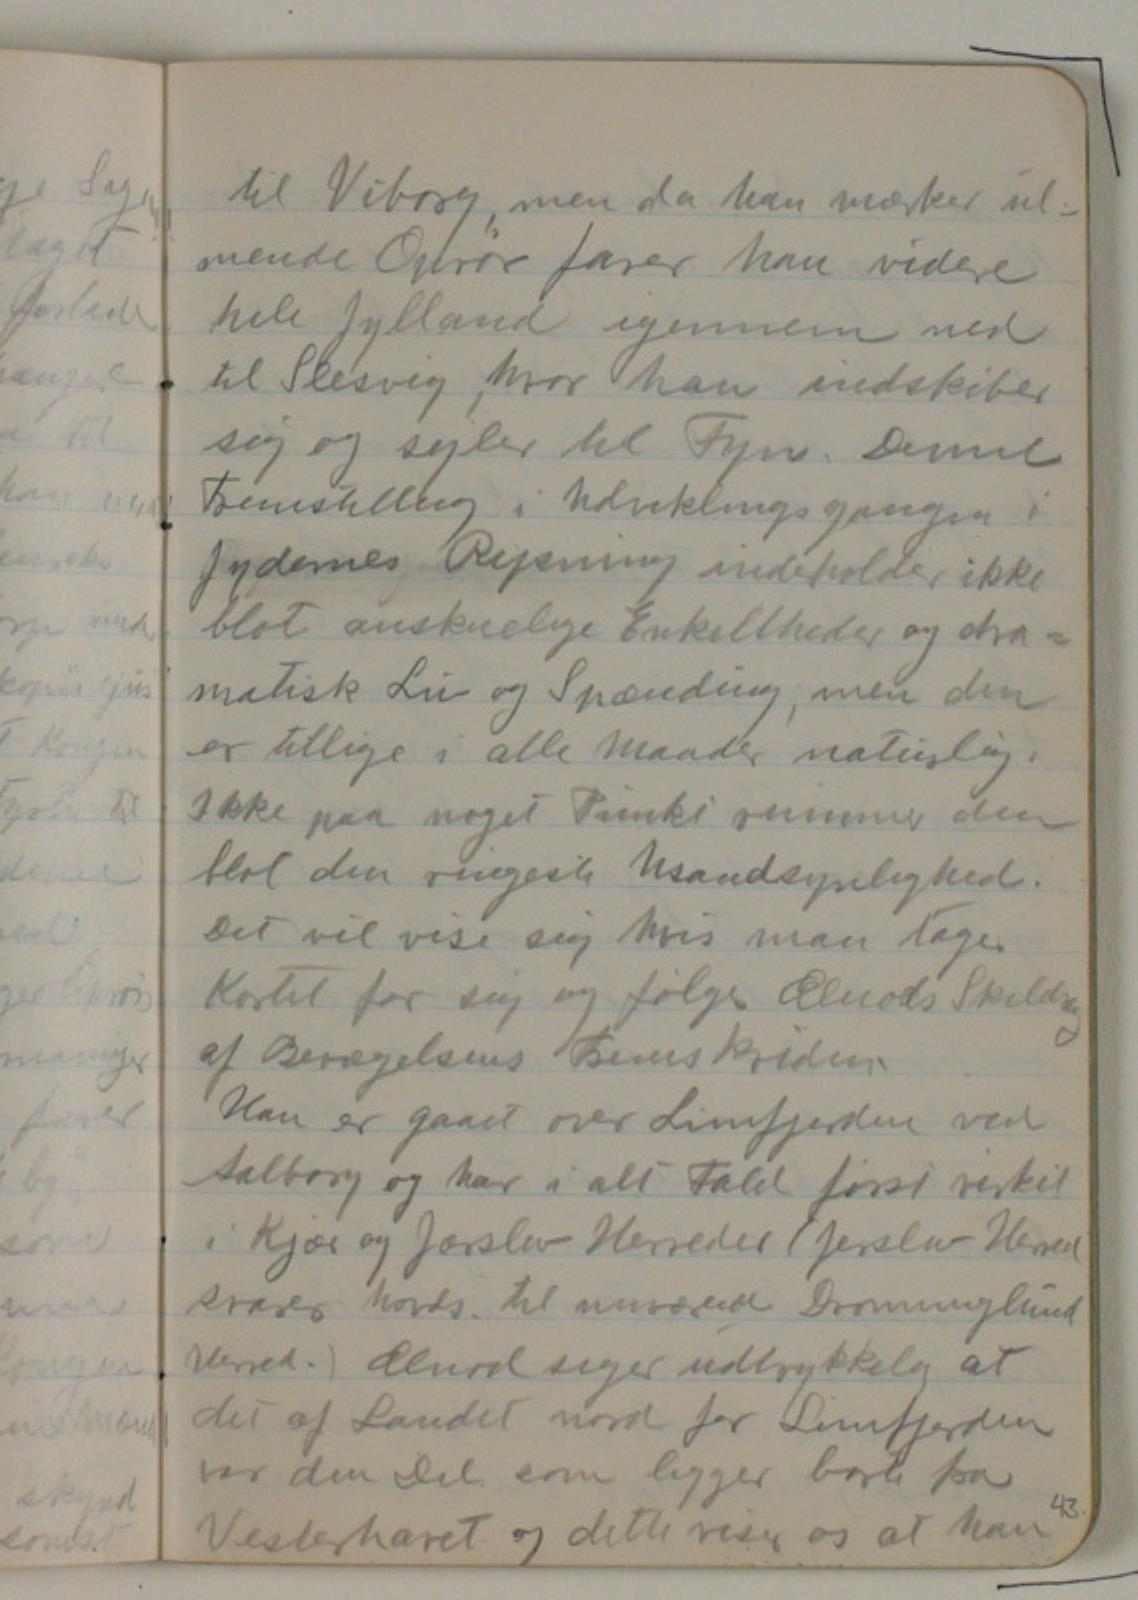 til Viborg, men da han mærker ul-
mende Oprør farer han videre
hele Jylland igennem ned
til Slesvig, hvor han indskiber
sig og sejler til Fyn. Denne
Fremstilling i Udviklingsgangen i
Jydernes Rejsning indeholder ikke
blot anskuelige Enkeltheder og dra=
matisk Liv og Spænding, men den
er tillige i alle Maader naturlig.
Ikke paa noget Punkt rummer den
blot den ringeste Usandsynlighed.
Det vil vise sig hvis man tager
Kortet for sig og følger Ælnods Skildring
af Bevægelsens Fremskriden.
Han er gaaet over Limfjorden ved
Aalborg og har i alt Fald først virket
i Kjær og Jerslev Herreder (Jerslev Herred
svarer hovds. til nuværend Dronninglund
Herred.) Ælnod siger udtrykkelig at
det af Landet nord for Limfjorden
var den Del som ligger borte fra
Vesterhavet og dette viser os at han
43.